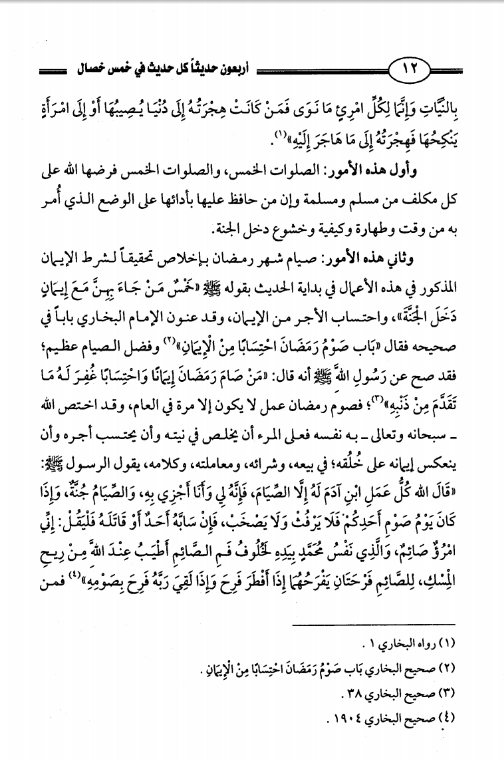 ١٢
أربعون حديثاً كل حديث في خمس خصال
بِالنِّيَّاتِ وَإِنَّمَا لِكُلِّ امْرِئٍ مَا نَوَى فَمَنْ كَانَتْ هِجْرَتُهُ إِلَى دُنْيَا يُصِيبُهَا أَوْ إِلَى امْرَأَةٍ
يَنْكِحُهَا فَهِجْرَتُهُ إِلَى مَا هَاجَرَ إِلَيْهِ»(١).
وأول هذه الأمور: الصلوات الخمس، والصلوات الخمس فرضها الله على
كل مكلف من مسلم ومسلمة وإن من حافظ عليها بأدائها على الوضع الذي أُمر
به من وقت وطهارة وكيفية وخشوع دخل الجنة.
وثاني هذه الأمور: صيام شهر رمضان بإخلاص تحقيقاً لشرط الإيمان
المذكور في هذه الأعمال في بداية الحديث بقوله ﷺ «خَمْسٌ مَنْ جَاءَ بِهِنَّ مَعَ إِيمَانٍ
دَخَلَ الْجَنَّةَ»، واحتساب الأجر من الإيمان، وقد عنون الإمام البخاري باباً في
صحيحه فقال «بَاب صَوْمُ رَمَضَانَ احْتِسَابًا مِنْ الْإِيمَانِ»(٢) وفضل الصيام عظيم؛
فقد صح عن رَسُولِ اللَّهِ ﷺ أنه قال: «مَنْ صَامَ رَمَضَانَ إِيمَانًا وَاحْتِسَابًا غُفِرَ لَهُ مَا
تَقَدَّمَ مِنْ ذَنْبِهِ»(٣)؛ فصوم رمضان عمل لا يكون إلا مرة في العام، وقد اختص الله
ـ سبحانه وتعالى ـ به نفسه فعلى المرء أن يخلص في نيته وأن يحتسب أجره وأن
ينعكس إيمانه على خُلُقه؛ في بيعه، وشرائه، ومعاملته، وكلامه، يقول الرسول ﷺ:
«قَالَ الله كُلُّ عَمَلِ ابْنِ آدَمَ لَهُ إِلَّا الصِّيَامَ، فَإِنَّهُ لِي وَأَنَا أَجْزِي بِهِ، وَالصِّيَامُ جُنَّةٌ، وَإِذَا
كَانَ يَوْمُ صَوْمِ أَحَدِكُمْ فَلَا يَرْفُثْ وَلَا يَصْخَبْ، فَإِنْ سَابَّهُ أَحَدٌ أَوْ قَاتَلَهُ فَلْيَقُلْ: إِنِّي
امْرُؤٌ صَائِمٌ، وَالَّذِي نَفْسُ مُحَمَّدٍ بِيَدِهِ لَخُلُوفُ فَمِ الصَّائِمِ أَطْيَبُ عِنْدَ اللَّهِ مِنْ رِيحِ
الْمِسْكِ، لِلصَّائِمِ فَرْحَتَانِ يَفْرَحُهُمَا إِذَا أَفْطَرَ فَرِحَ وَإِذَا لَقِيَ رَبَّهُ فَرِحَ بِصَوْمِهِ»(٤) فمن
(١) رواه البخاري ١ .
(٢) صحيح البخاري بَاب صَوْمُ رَمَضَانَ احْتِسَابًا مِنْ الْإِيمَانِ .
(٣) صحيح البخاري ٣٨ .
(٤) صحيح البخاري ١٩٠٤ .